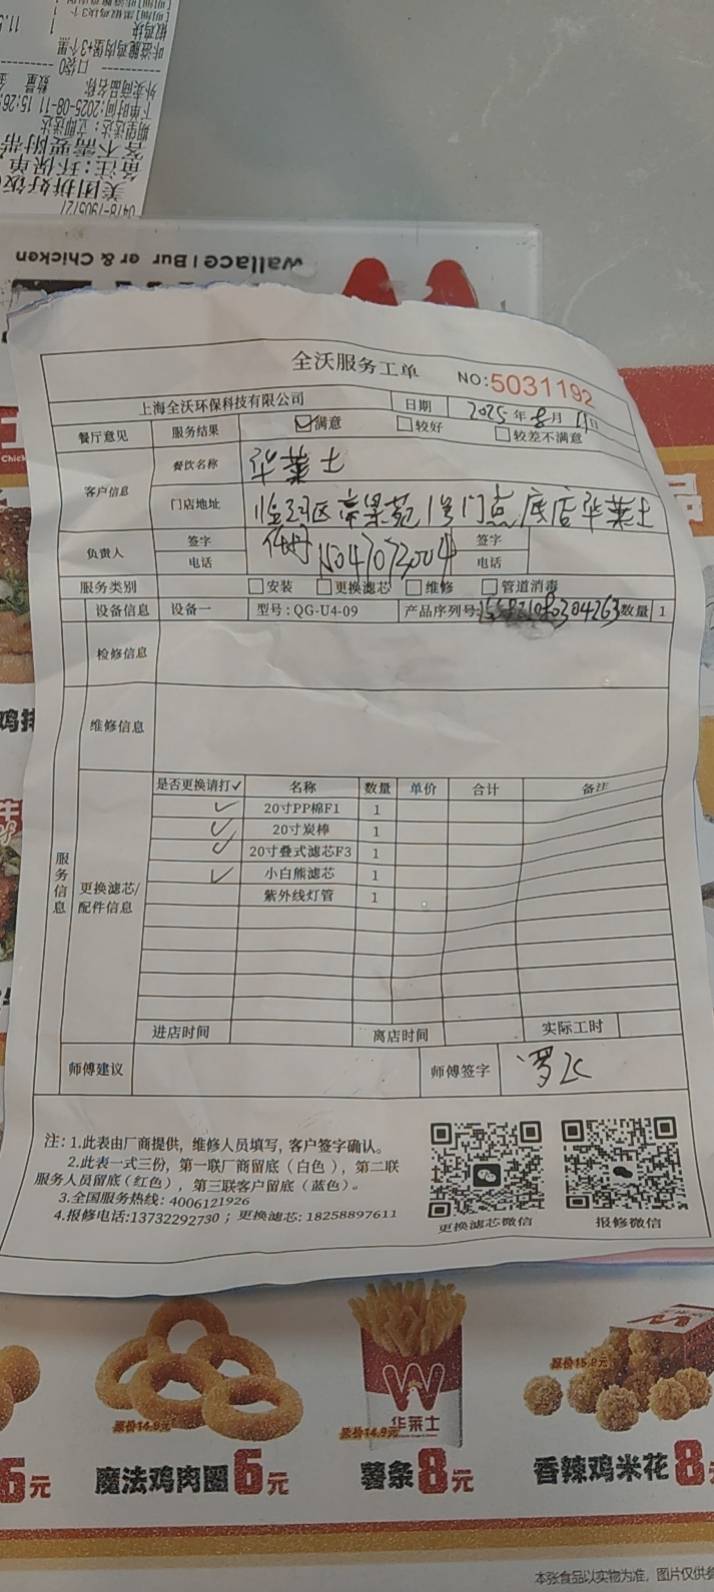 全沃服务工单 NO:5031192
上海全沃环保科技有限公司 日期 2025年8月11日
餐厅意见 服务结果 满意 较好 较差不满意
客户信息 餐饮名称 华莱士
门店地址 临河区 苑1号门点 底店华莱士
负责人 签字 签字
电话 15047073004 电话
服务类别 安装 更换滤芯 维修 管道消毒
设备信息 设备一 型号:QG-U4-09 产品序列号: 数量 1
检修信息
维修信息
服务信息
更换滤芯/配件信息
是否更换请打✓ 名称 数量 单价 合计 备注
✓ 20寸PP棉F1 1
✓ 20寸炭棒 1
✓ 20寸叠式滤芯F3 1
✓ 小白熊滤芯 1
紫外线灯管 1
进店时间 离店时间 实际工时
师傅建议 师傅签字 罗飞
注:1.此表由厂商提供,维修人员填写,客户签字确认。
2.此表一式三份,第一联厂商留底(白色),第二联
服务人员留底(红色),第三联客户留底(蓝色)。
3.全国服务热线:4006121926
4.报修电话:13732292730;更换滤芯:18258897611
更换滤芯微信 报修微信
wallace | Bur er & Chicken
美团拼好饭
备注:环保单
下单时间:2025-08-11 15:26
期望送达:立即送达
外卖商品名称 数量
口袋0
华莱士
原价14.9元
原价14.9元
原价15.9元
6元
魔法鸡肉圈6元
薯条8元
香辣鸡米花8
本张食品以实物为准,图片仅供参